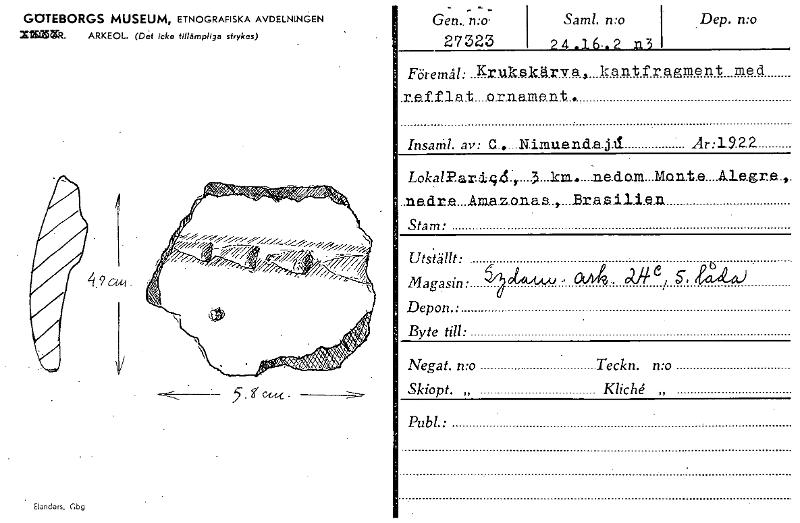 GÖTEBORGS MUSEUM, ETNOGRAFISKA AVDELNINGEN
ARKEOL. (Det icke tillämpliga strykas)
4,9 cm.
5.8 cm.
Elanders, Gbg
Gen. n:o Saml. n:o Dep. n:o
27323 24.16.2 n3
Föremål: Krukskärva, kantfragment med
refflat ornament.
Insaml. av: C. Nimuendajú År: 1922
Lokal Paricó, 3 km. nedom Monte Alegre,
nedre Amazonas, Brasilien
Stam:
Utställt:
Magasin: Sydam. ark. 24c, 5. låda
Depon.:
Byte till:
Negat. n:o Teckn. n:o
Skiopt. „ Kliché „
Publ.: